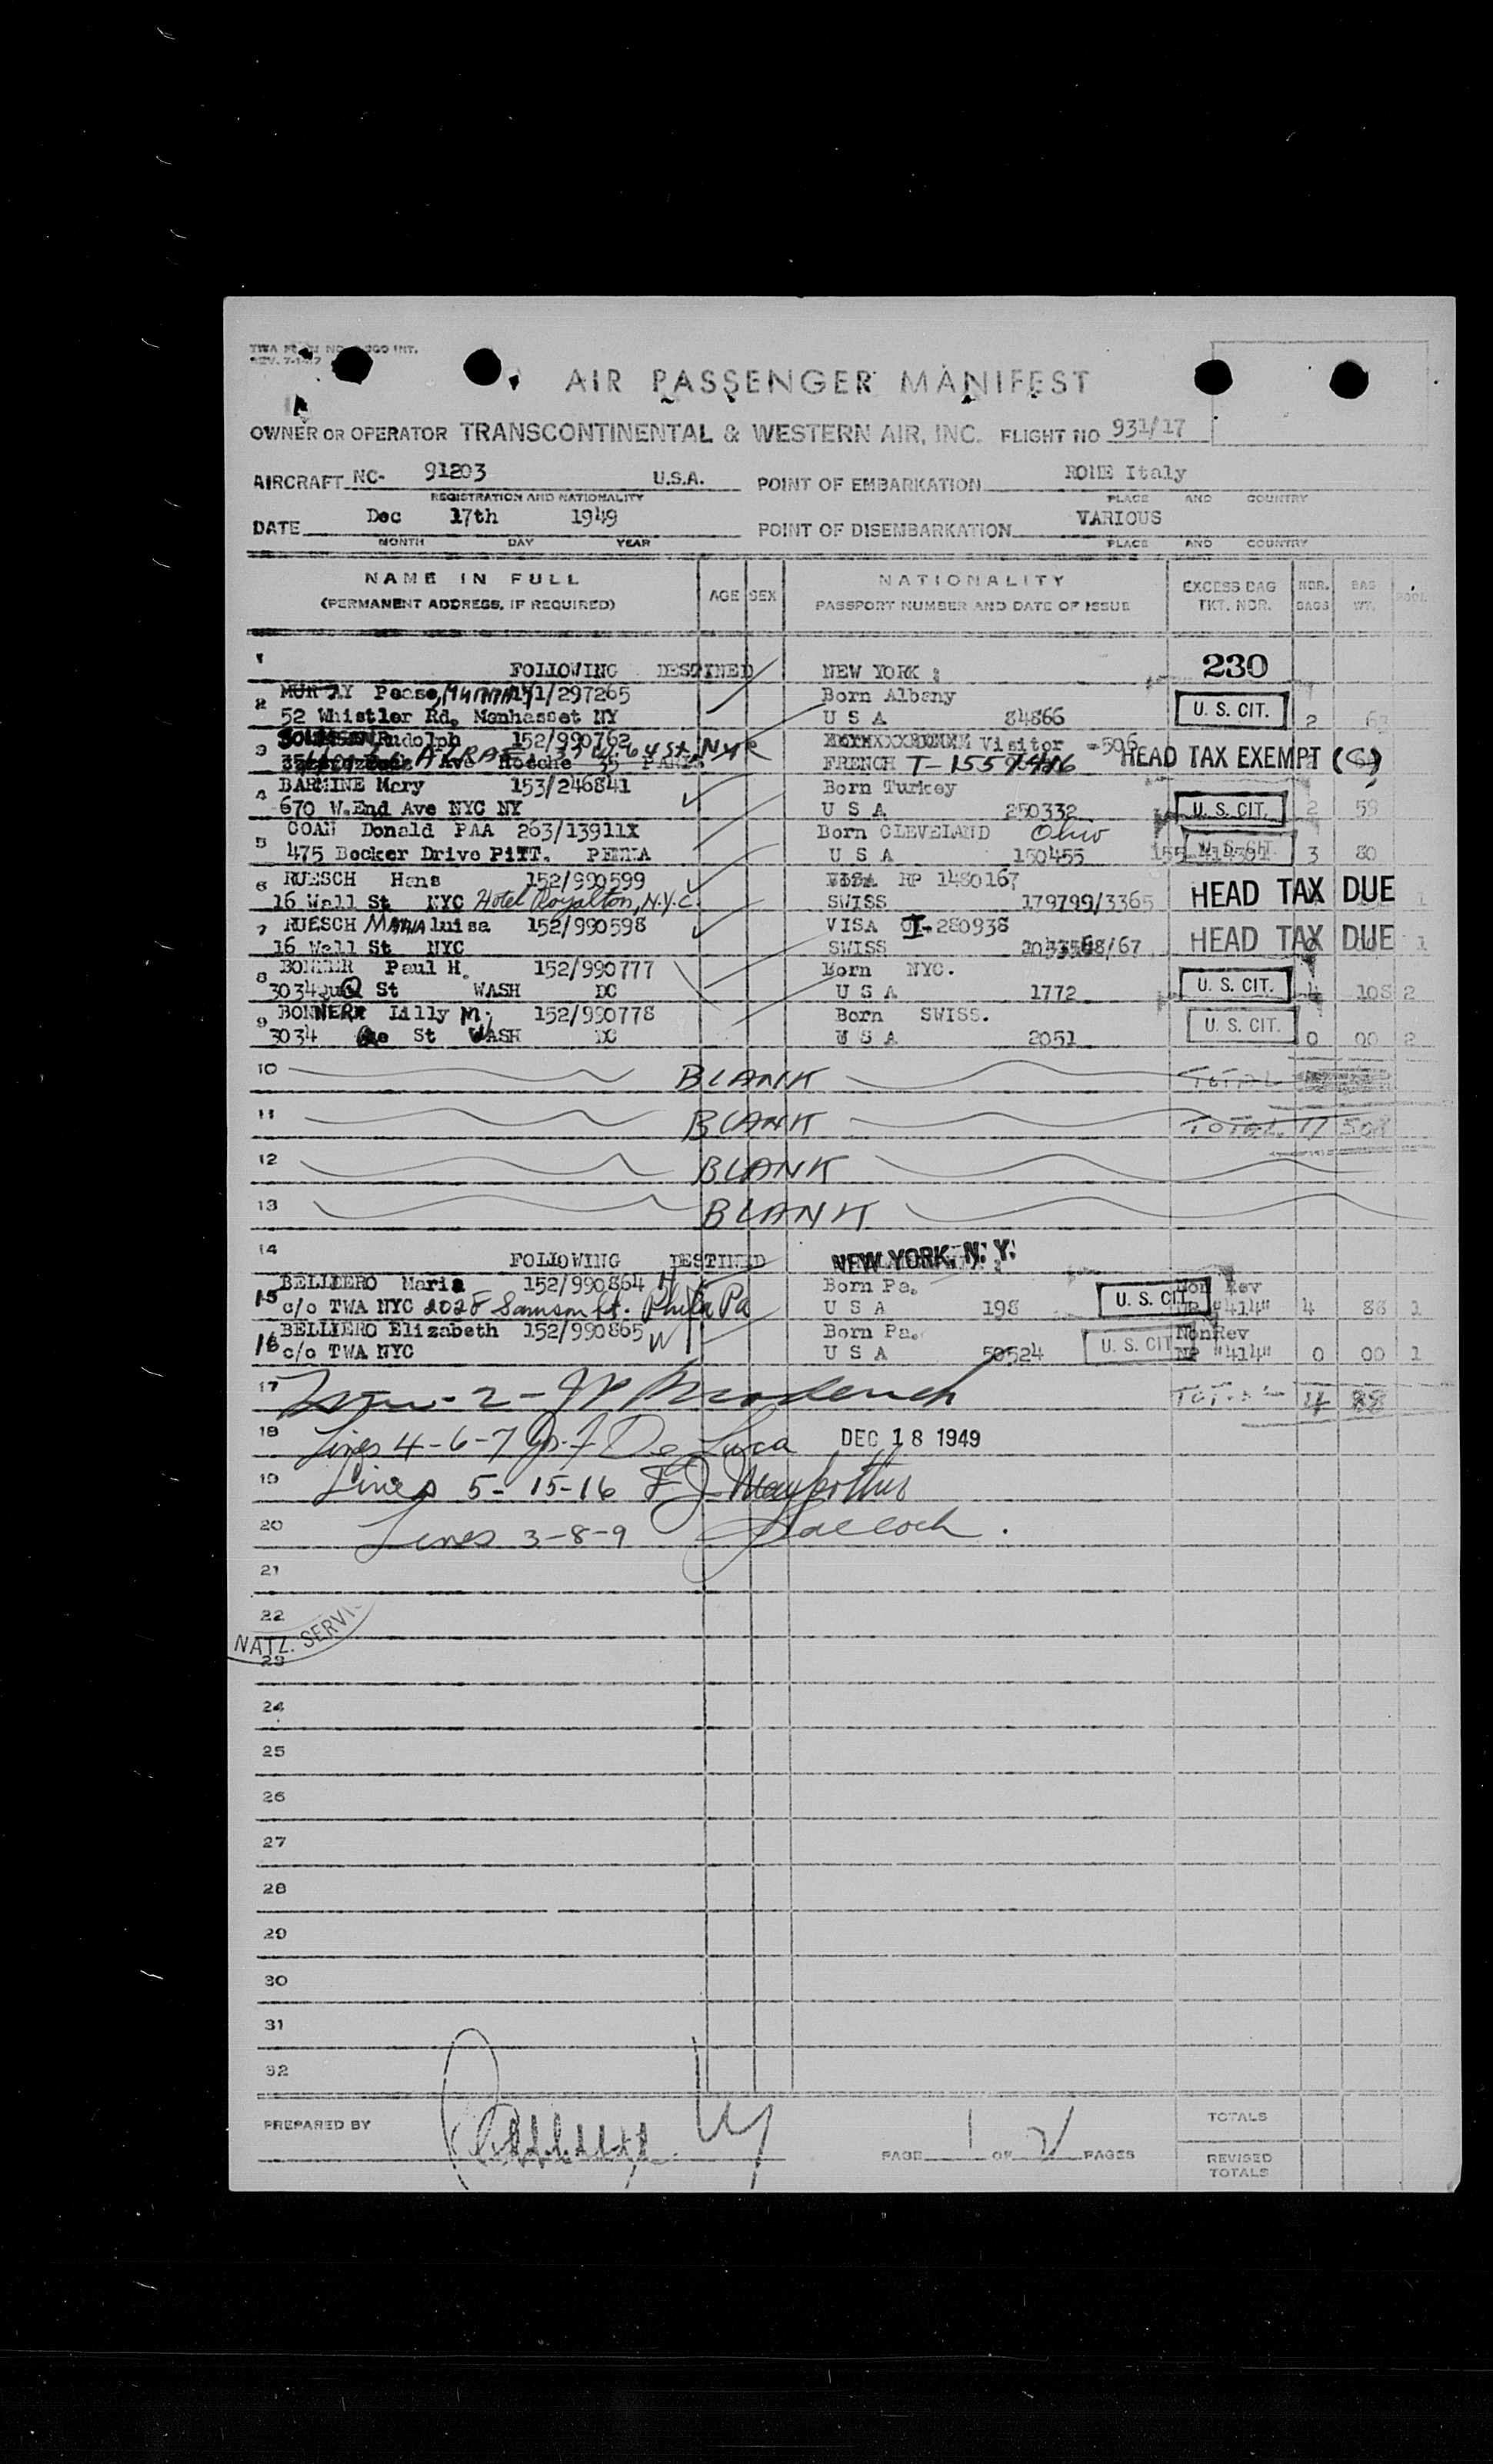 AIR PASSENGER MANIFEST
OWNER OR OPERATOR TRANSCONTINENTAL & WESTERN AIR, INC. FLIGHT NO 931/17
AIRCRAFT NC- 91203 U.S.A. POINT OF EMBARKATION ROME Italy
REGISTRATION AND NATIONALITY PLACE AND COUNTRY
DATE Dec 17th 1949 POINT OF DISEMBARKATION VARIOUS
MONTH DAY YEAR PLACE AND COUNTRY
NAME IN FULL AGE SEX NATIONALITY EXCESS BAG NDR. BAG
(PERMANENT ADDRESS, IF REQUIRED) PASSPORT NUMBER AND DATE OF ISSUE TKT. NDR. BAGS WT.
1 FOLLOWING DESTINED NEW YORK : 230
2 MURRAY Pease, 151/297265 Born Albany
52 Whistler Rd. Manhasset NY U S A 84866 U. S. CIT. 2
3 Rudolph 152/990762 Visitor
FRENCH HEAD TAX EXEMPT
4 BARMINE Mary 153/246841 Born Turkey
670 W.End Ave NYC NY U S A 250332 U. S. CIT. 2 59
5 COAN Donald PAA 263/13911X Born CLEVELAND Ohio
475 Becker Drive PITT. PENNA U S A 150455 U. S. CIT. 3 80
6 RUESCH Hans 152/990599 VISA RP 1480167
16 Wall St NYC Hotel Royalton, N.Y.C. SWISS 179799/3365 HEAD TAX DUE 1
7 RUESCH MARIA luisa 152/990598 VISA 280938
16 Wall St NYC SWISS HEAD TAX DUE 1
8 BONNER Paul H. 152/990777 Born NYC.
3034 Q St WASH DC U S A 1772 U. S. CIT. 4 108 2
9 BONNER Lilly M. 152/990778 Born SWISS.
3034 St WASH DC U S A 2051 U. S. CIT. 0 00 2
10 BLANK TOTAL
11 BLANK TOTAL 17 508
12 BLANK
13 BLANK
14 FOLLOWING DESTINED NEW YORK, N. Y.
15 BELLIERO Maria 152/990864 H Born Pa. Non Rev
c/o TWA NYC 2028 Samson St. Phila Pa U S A 198 U. S. CIT. NP "414" 4 88 1
16 BELLIERO Elizabeth 152/990865 W Born Pa. NonRev
c/o TWA NYC U S A 50524 U. S. CIT. NP "414" 0 00 1
17 TOTAL 4 88
18 Lines 4-6-7 De Luca DEC 18 1949
19 Lines 5-15-16 F J
20 Lines 3-8-9
21
22
NATZ. SERVI
23
24
25
26
27
28
29
30
31
32
PREPARED BY PAGE 1 OF 2 PAGES TOTALS
REVISED
TOTALS